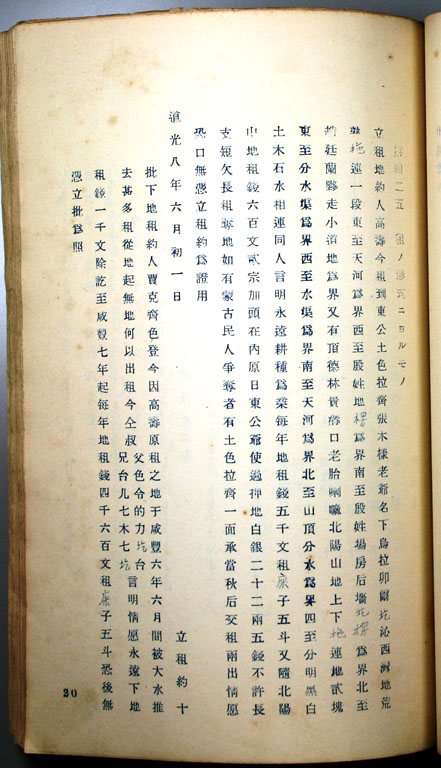 二五 租ノ形式ニヨルモノ
立租地約人高壽今租到東公土色拉齊張木樣老爺名下烏拉卯爾圪沁西灣地荒
熟地連一段東至天河爲界西至殷姓地楞爲界南至殷姓場房后墻圪楞爲界北至
廷蘭夥走小道地爲界又有頂德林貴溝口老胎喇嘛北陽山地上下地連地貳塊
東至分水渠爲界西至水渠爲界南至天河爲界北至山頂分水爲界四至分明黑白
土木石水相連同人言明永遠耕種爲業每年地租錢五千文租糜子五斗又隨北陽
山地租錢六百文貳宗加頭在內原日東公爺使過押地白銀二十二兩五錢不許長
支短欠長租奪地如有蒙古民人爭奪者有土色拉齊一面承當秋后交租兩出情愿
恐口無憑立租約爲證用
道光八年六月初一日
立租約十
批下地租約人賈克齊色登今因高壽原租之地于咸豐六年六月間被大水推
去甚多租從地起無地何以出租今仝叔父色令的力圪台兄台几七木七圪言明情愿永遠下地
租錢一千文除訖至咸豐七年起每年地租錢四千六百文租糜子五斗恐後無
憑立批爲照
20